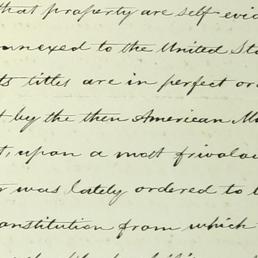 that property are self-evid
nnexed to the United Sta
ts titles are in perfect or
t by the then American M
t, upon a most frivolou
r was lately ordered to
onstitution from which